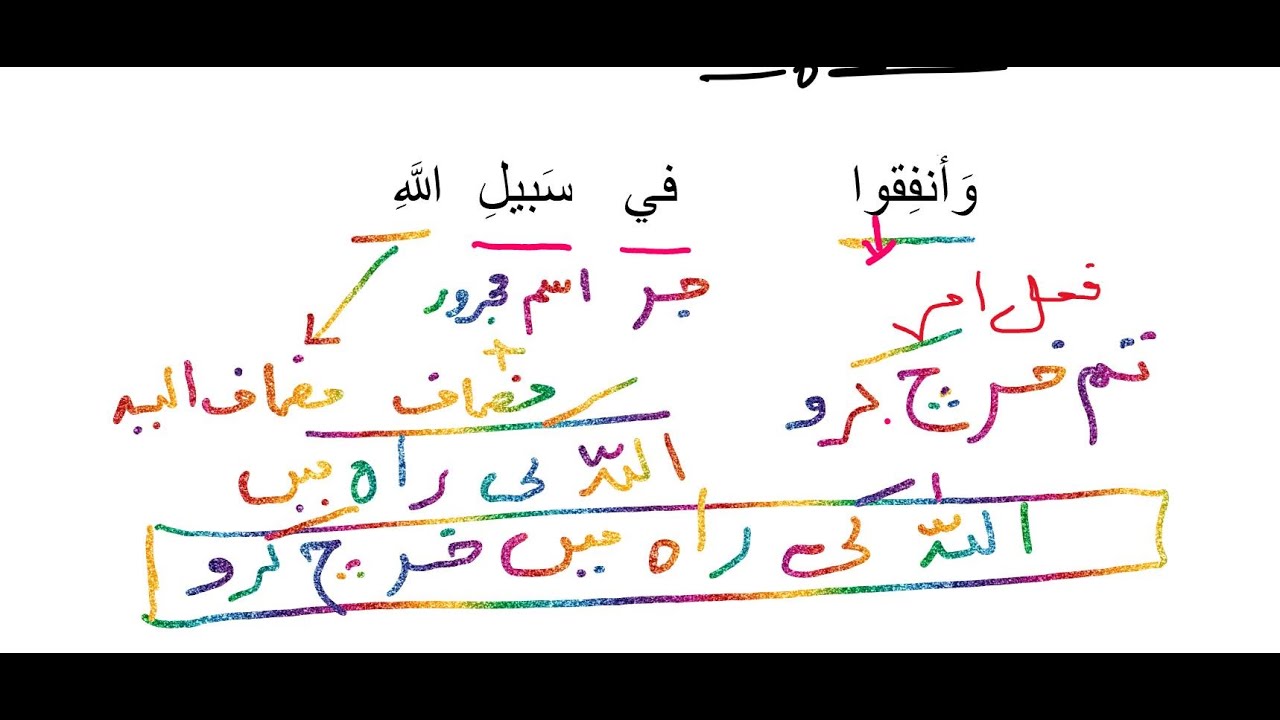 وَأنفِقوا في سَبيلِ اللَّهِ
فعل امر
جر اسم مجرور
+
تم خرچ کرو
مضاف مضاف الیہ
اللہ کی راہ میں
اللّہ کی راہ میں خرچ کرو